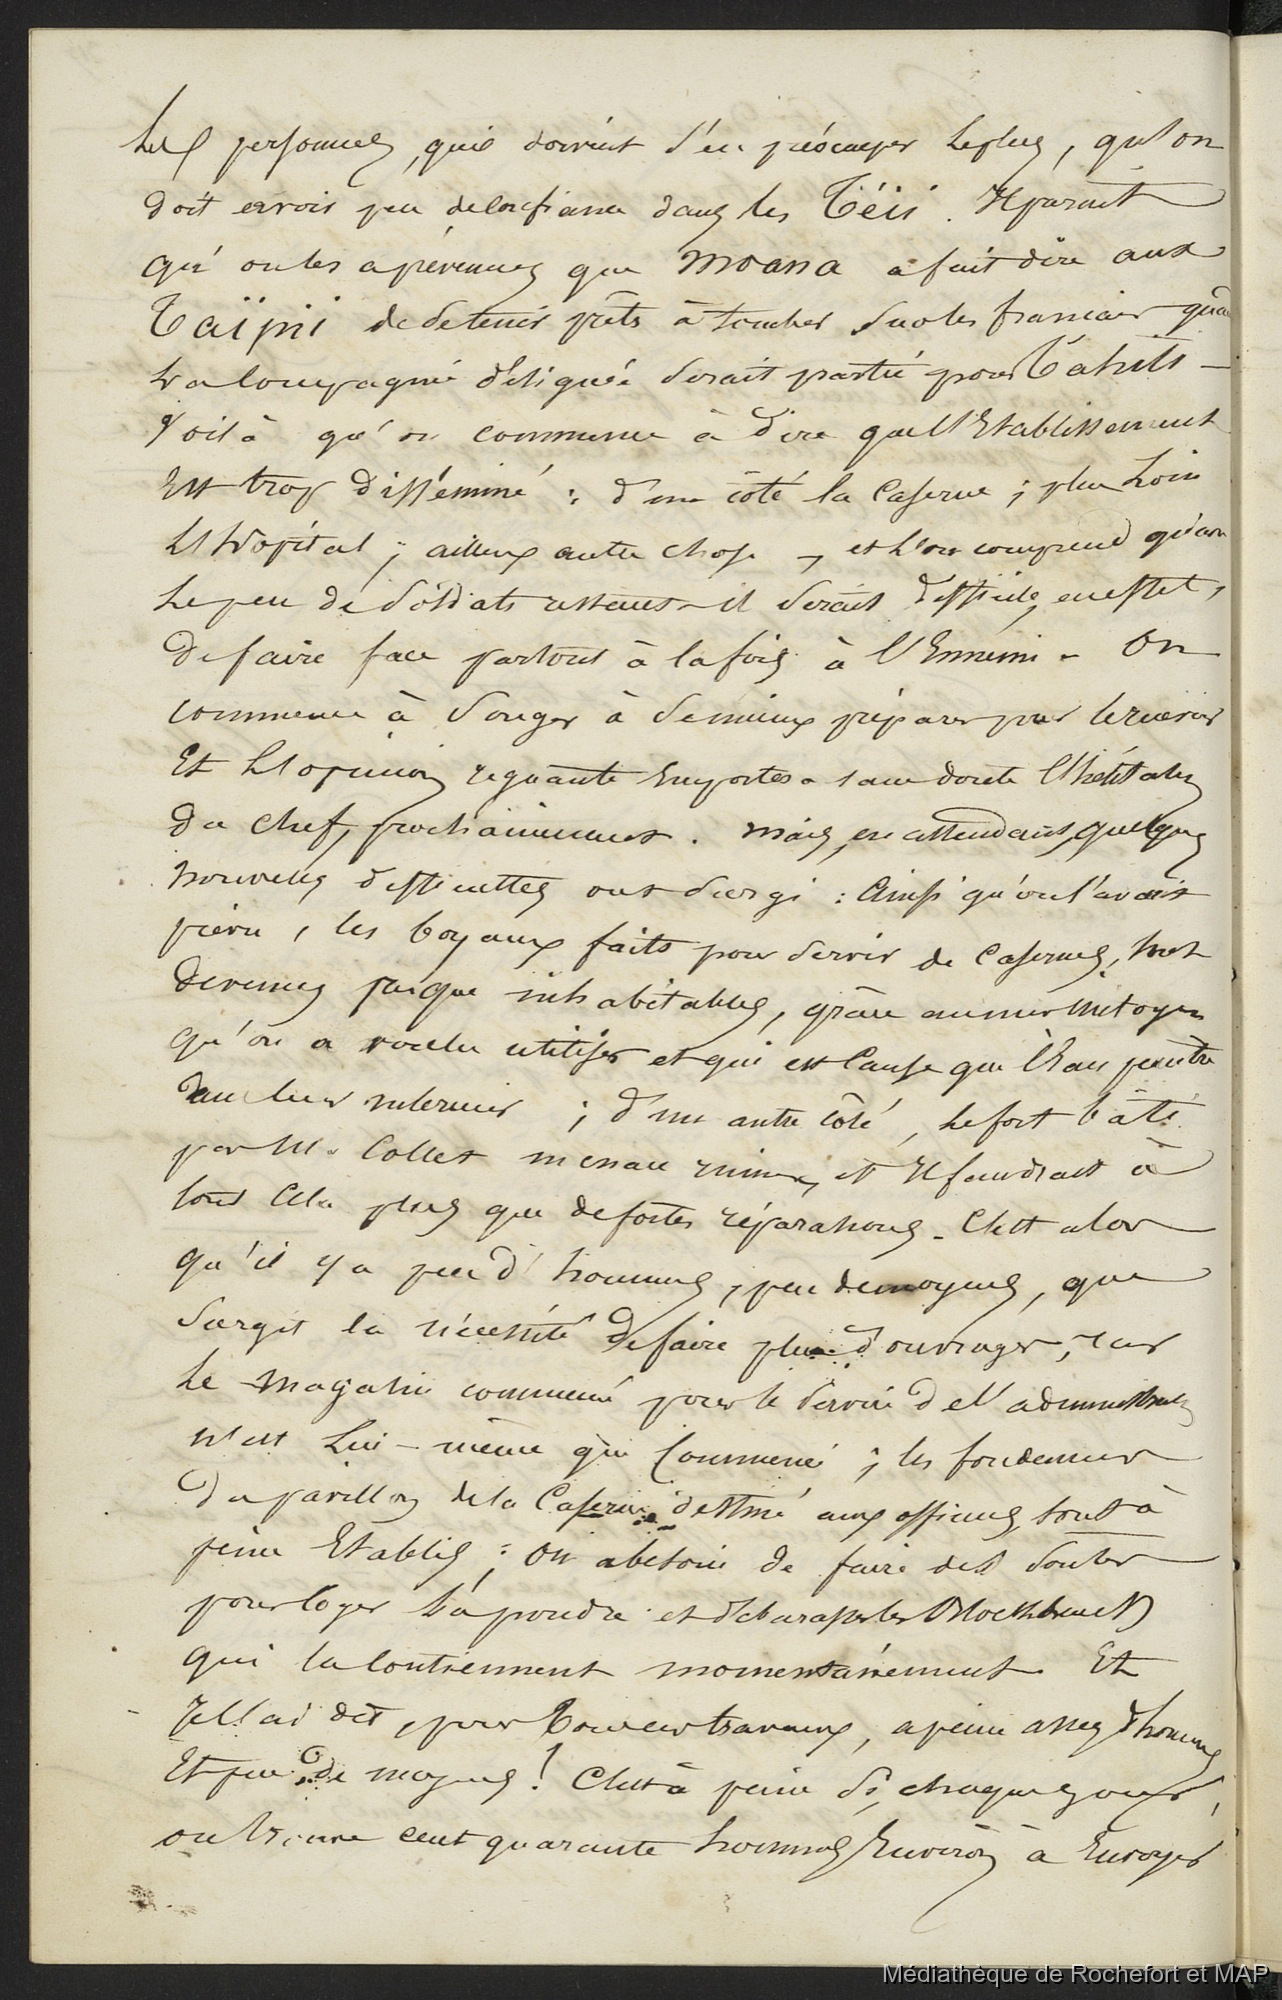 Les personnes, qui doivent s'en préocuper le plus, qu'on
doit avoir peu de confiance dans les Téii. Il parait
qu'on les a prévenus que Moana a fait dire aux
Taïpii de se tenir prêts à tomber sur les français quand
la Compagnie désignée serait partie pour Tahiti -
Voilà qu'on commence à dire que l'Etablissement
Est trop disséminé : d'un côté la Caserne ; plus loin
L'hopital ; ailleurs autre chose -, et l'on comprend qu'avec
Le peu de Soldats restants il serait difficile, en effet,
De faire face partout à la fois à l'Ennemi - On
commence à Songer à se mieux préparer pour le recevoir
Et L'opinion régnante Emportera sans doute l'hésitation
du Chef, prochainement. Mais, en attendant, quelques
Nouvelles difficultés ont surgi : Ainsi qu'on l'avait
prévu, les boyaux faits pour servir de Casernes, sont
Devenus presque inhabitables, grâce au mur mitoyen
qu'on a voulu utiliser et qui est Cause que l'Eau pénètre
dans leur intérieur ; d'un autre côté, Le fort bâti
par M. Collet menace ruine, et Il faudrait à
tout Cela plus que de fortes réparations - C'est alors
qu'il y a peu d'hommes, peu de moyens, que
Surgit la nécessité de faire plus d'ouvrages, car
Le Magasin commencé pour le Service de l'administration
n'est Lui-même que Commencé ; les fondements
du pavillon de la Caserne destiné aux officiers, sont à
peine Etablis ; On a besoin de faire des Soutes
pour loger La poudre et débarasser les Blockhouses
qui la Contiennent momentanément. Et
Je l'ai dit, pour tous ces travaux, à peine assez d'hommes
Et peu de moyens ! C'est à peine si, chaque jour,
on trouve cent quarante hommes Environ à Envoyer
Médiathèque de Rochefort et MAP